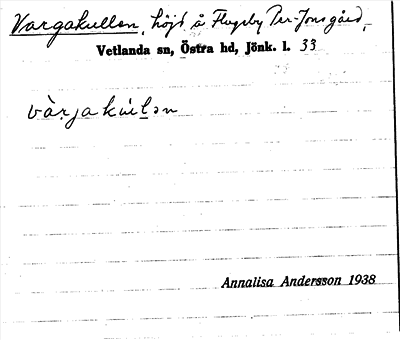 Vargakullen, höjd å Flugeby Per-Jonsgård,
Vetlanda sn, Östra hd, Jönk. l. 33
vàrjakúlən
Annalisa Andersson 1938